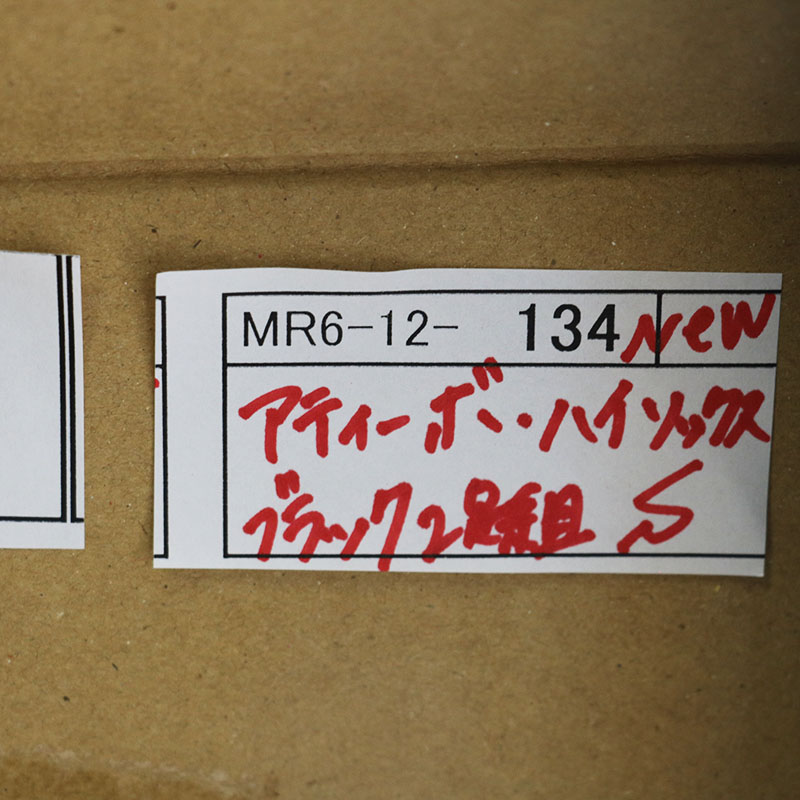 MR6-12- 134 New
アティーボ・ハイソックス
ブラック2足組 S